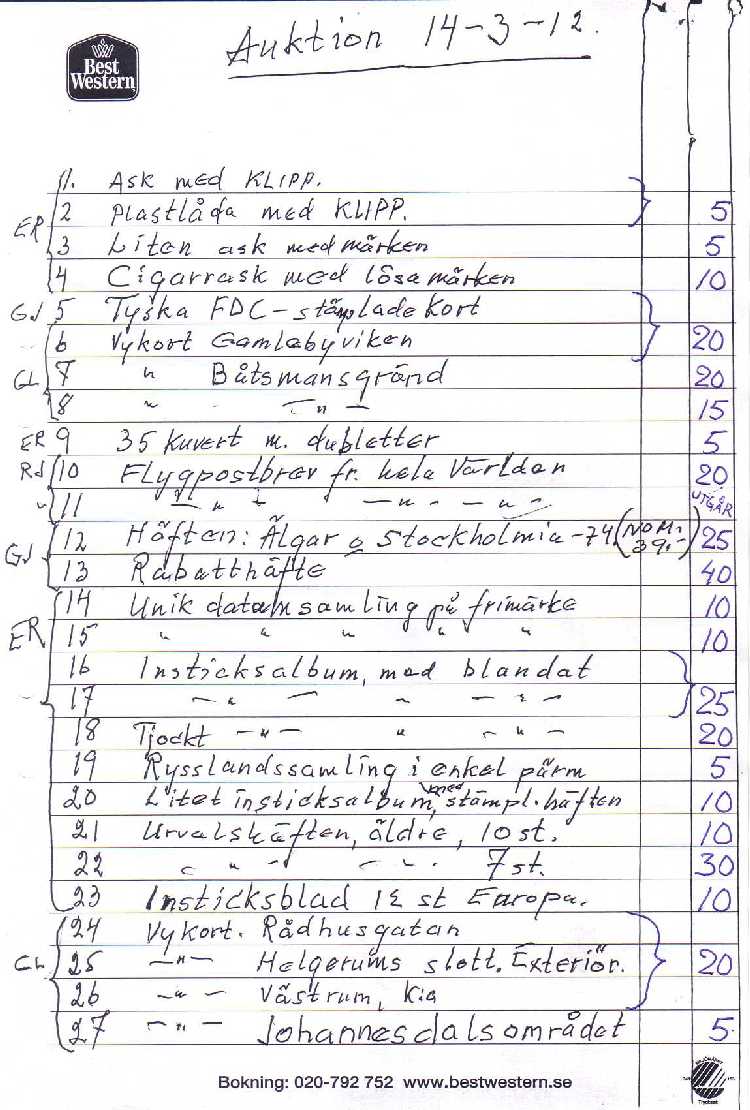 Best Western
Auktion 14-3-12.
1. Ask med KLIPP.
ER 2 Plastlåda med KLIPP. 5
3 Liten ask med märken 5
4 Cigarrask med lösa märken 10
GJ 5 Tyska FDC-stämplade kort
6 Vykort Gamlebyviken 20
GL 7 " Båtsmansgränd 20
8 " -"- 15
ER 9 35 kuvert m. dubletter 5
RJ 10 Flygpostbrev fr. hela världen 20
" 11 -"- -"- -"- UTGÅR
GJ 12 Häften: Älgar o Stockholmia-74 (NOM. 39.-) 25
13 Rabatthäfte 40
14 Unik datamsamling på frimärke 10
ER 15 " " " " " 10
16 Insticksalbum, med blandat
17 -"- " -"- 25
18 Tjockt -"- " -"- 20
19 Rysslandssamling i enkel pärm 5
20 Litet insticksalbum, med stämpl. häften 10
21 Urvalshäften, äldre, 10 st. 10
22 -"- -"- 7 st. 30
23 Insticksblad 12 st Europa. 10
24 Vykort. Rådhusgatan
CL 25 -"- Helgerums slott. Exteriör. 20
26 -"- Västrum, k:a
27 -"- Johannesdalsområdet 5
Bokning: 020-792 752 www.bestwestern.se